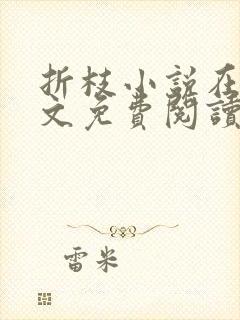 折枝小说在
文免費閱讀
雷米